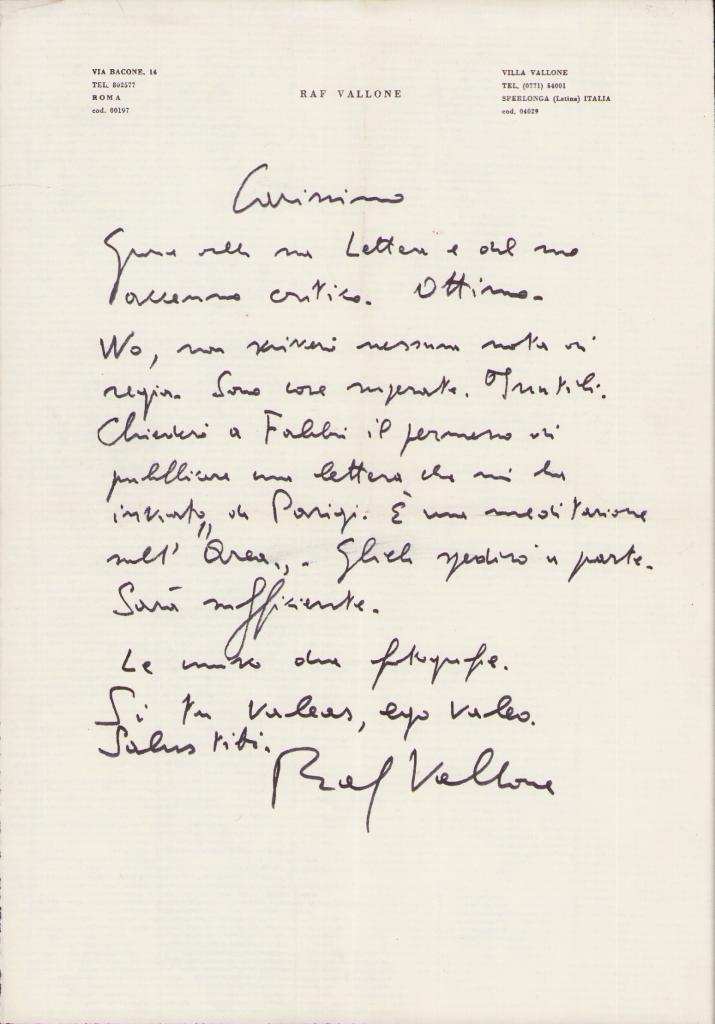 VIA BACONE, 14
TEL. 802577
ROMA
cod. 00197
RAF VALLONE
VILLA VALLONE
TEL. (0771) 54001
SPERLONGA (Latina) ITALIA
cod. 04029
Carissimo
Grazie della sua Lettera e del suo
accenno critico. Ottimo.
No, non scriverò nessuna nota di
regia. Sono cose superate. Inutili.
Chiederò a Fabbri il permesso di
pubblicare una lettera che mi ha
inviato, da Parigi. È una meditazione
sull' "Area". Gliela spedirò a parte.
Sarà sufficiente.
Le unisco due fotografie.
Si tu valeas, ego valeo.
Salus tibi.
Raf Vallone